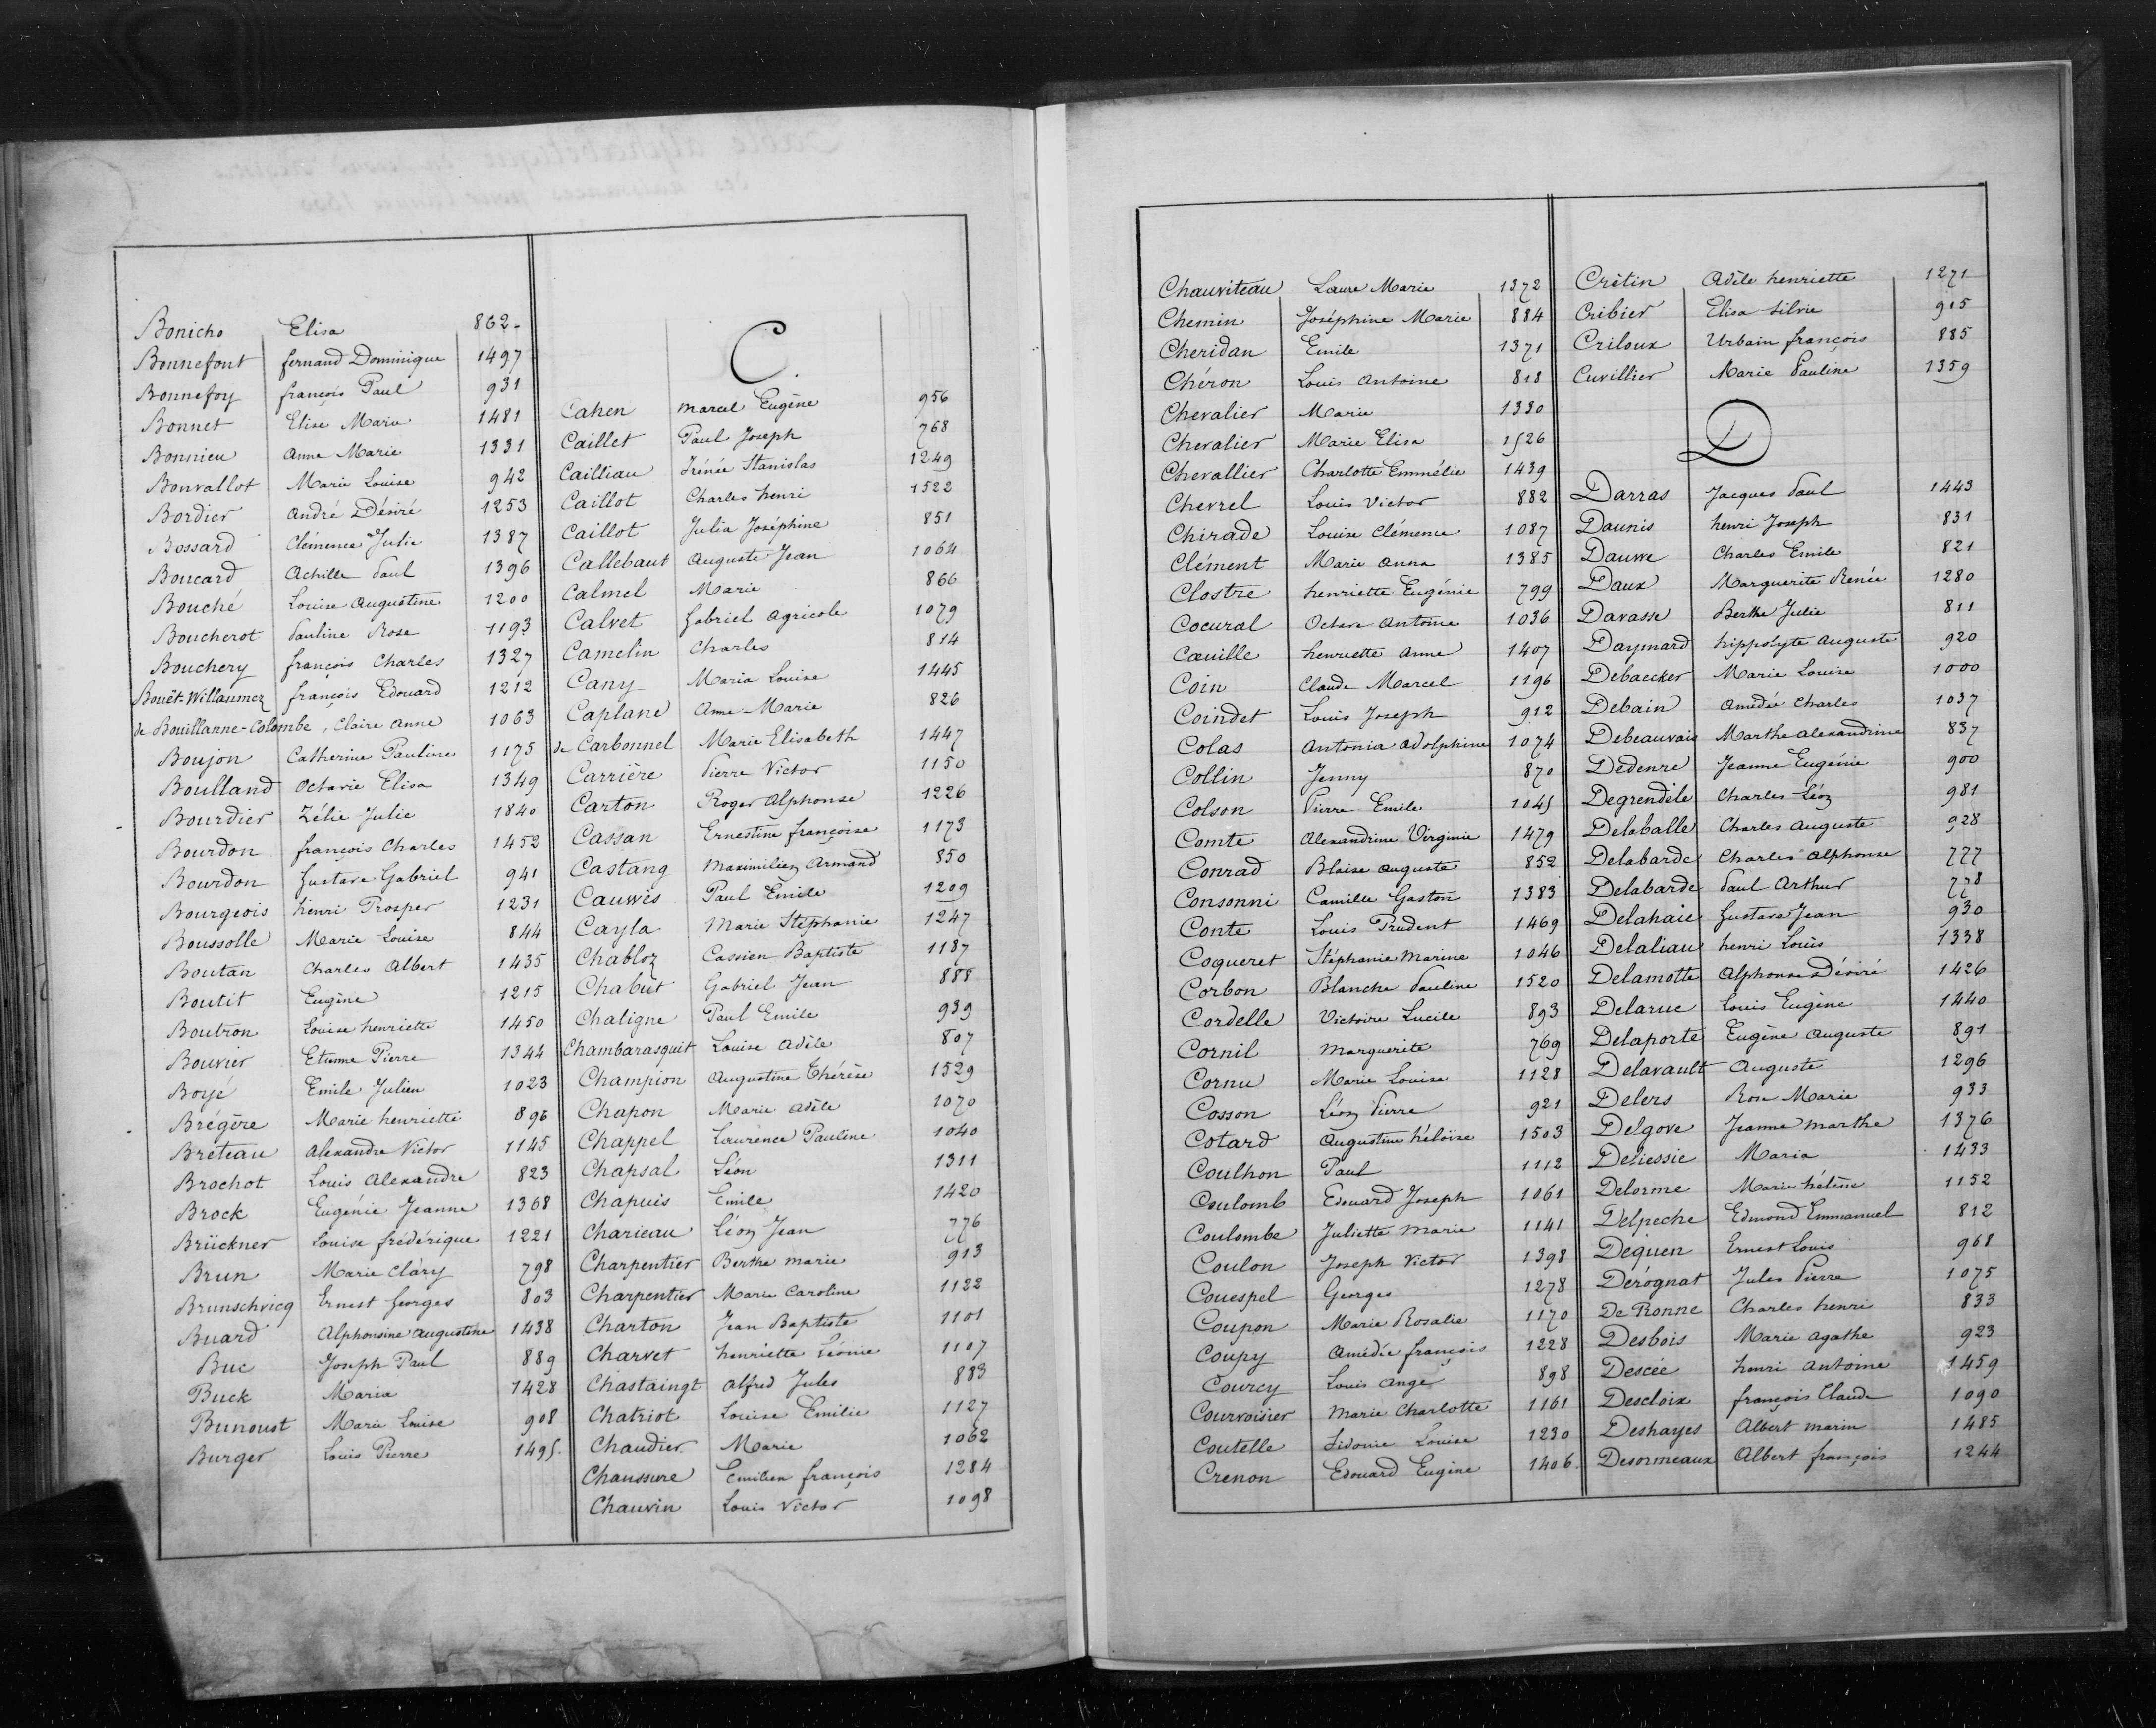 Bonicho Elisa 862
Bonnefont fernand Dominique 1497
Bonnefoy françois Paul 931
Bonnet Elise Marie 1481
Bonnieu Anne Marie 1331
Bonvallot Marie Louise 942
Bordier André Désiré 1253
Bossard Clémence Julie 1387
Boucard Achille Paul 1396
Bouché Louise Augustine 1200
Boucherot Pauline Rose 1193
Bouchery françois Charles 1327
Bouët-Willaumez françois Edouard 1212
de Bouillanne-Colombe, Claire Anne 1063
Boujon Catherine Pauline 1175
Boulland Octavie Elisa 1349
Bourdier Zélie Julie 1840
Bourdon françois Charles 1452
Bourdon Gustave Gabriel 941
Bourgeois henri Prosper 1231
Boussolle Marie Louise 844
Boutan Charles Albert 1435
Boutit Eugène 1215
Boutron Louise henriette 1450
Bouvier Etienne Pierre 1344
Boyé Emile Julien 1023
Brégère Marie henriette 896
Breteau Alexandre Victor 1145
Brochot Louis Alexandre 823
Brock Eugénie Jeanne 1368
Brückner Louise frédérique 1221
Brun Marie Clary 798
Brunschvicq Ernest Georges 803
Buard Alphonsine Augustine 1438
Buc Joseph Paul 889
Buck Maria 1428
Bunoust Marie Louise 908
Burger Louis Pierre 1495.
C.
Cahen Marcel Eugène 956
Caillet Paul Joseph 768
Cailliau Irénée Stanislas 1249
Caillot Charles henri 1522
Caillot Julia Joséphine 851
Callebaut Auguste Jean 1064
Calmel Marie 866
Calvet Gabriel Agricole 1079
Camelin Charles 814
Cany Maria Louise 1445
Caplane Anne Marie 826
de Carbonnel Marie Elisabeth 1447
Carrière Pierre Victor 1150
Carton Roger Alphonse 1226
Cassan Ernestine françoise 1173
Castang Maximilien Armand 850
Cauwès Paul Emile 1209
Cayla Marie Stéphanie 1247
Chabloz Cassien Baptiste 1187
Chabut Gabriel Jean 888
Chaligne Paul Emile 939
Chambarasquit Louise Adèle 807
Champion Augustine Thérèse 1529
Chapon Marie Adèle 1070
Chappel Laurence Pauline 1040
Chapsal Léon 1311
Chapuis Emile 1420
Charieau Léon Jean 776
Charpentier Berthe Marie 913
Charpentier Marie Caroline 1122
Charton Jean Baptiste 1101
Charvet henriette Léonie 1107
Chastaingt Alfred Jules 883
Chatriot Louise Emilie 1127
Chaudier Marie 1062
Chaussure Emilien françois 1284
Chauvin Louis Victor 1098
Chauviteau Laure Marie 1372
Chemin Joséphine Marie 884
Cheridan Emile 1371
Chéron Louis Antoine 818
Chevalier Marie 1330
Chevalier Marie Elisa 1526
Chevallier Charlotte Emmélie 1439
Chevrel Louis Victor 882
Chirade Louise Clémence 1087
Clément Marie Anna 1385
Clostre henriette Eugénie 799
Cocural Octave Antoine 1036
Cœuille henriette Anne 1407
Coin Claude Marcel 1196
Coindet Louis Joseph 912
Colas Antonia Adolphine 1074
Collin Jenny 870
Colson Pierre Emile 1045
Comte Alexandrine Virginie 1479
Conrad Blaise Auguste 852
Consonni Camille Gaston 1383
Conte Louis Prudent 1469
Coqueret Stéphanie Marine 1046
Corbon Blanche Pauline 1520
Cordelle Victoire Lucile 893
Cornil Marguerite 769
Cornu Marie Louise 1128
Cosson Léon Pierre 921
Cotard Augustine héloïse 1503
Coulhon Paul 1112
Coulomb Edouard Joseph 1061
Coulombe Juliette Marie 1141
Coulon Joseph Victor 1398
Couespel Georges 1278
Coupon Marie Rosalie 1170
Coupy Amédée françois 1228
Courcy Louis Ange 898
Courvoisier Marie Charlotte 1161
Coutelle Sidonie Louise 1230
Crenon Edouard Eugène 1406.
Crétin Adèle henriette 1271
Cribier Elisa Silvie 915
Criloux Urbain françois 885
Cuvillier Marie Pauline 1359
D
Darras Jacques Paul 1443
Daunis henri Joseph 831
Dauwe Charles Emile 821
Daux Marguerite Renée 1280
Davasse Berthe Julie 811
Daymard hippolyte Auguste 920
Debaecker Marie Louise 1000
Debain Amédée Charles 1037
Debeauvais Marthe Alexandrine 837
Dedenre Jeanne Eugénie 900
Degrendèle Charles Léon 981
Delaballe Charles Auguste 928
Delabarde Charles Alphonse 777
Delabarde Paul Arthur 778
Delahaie Gustave Jean 930
Delaliau henri Louis 1338
Delamotte Alphonse Désiré 1426
Delarue Louis Eugène 1440
Delaporte Eugène Auguste 891
Delavault Auguste 1296
Delers Rose Marie 933
Delgove Jeanne Marthe 1376
Deliessie Maria 1433
Delorme Marie hélène 1152
Delpeche Edmond Emmanuel 812
Dequen Ernest Louis 968
Dérognat Jules Pierre 1075
De Ronne Charles henri 833
Desbois Marie Agathe 923
Descée henri Antoine 1459
Descloix françois Claude 1090
Deshayes Albert Marin 1485
Desormeaux Albert françois 1244